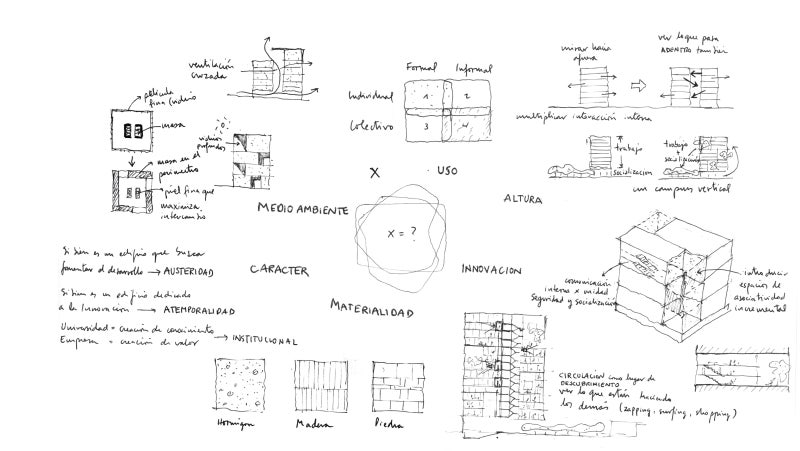 ventilación
cruzada
película
fina (vidrio
masa
masa en el
perímetro
piel fina que
maximiza
intercambio
vidrios
profundos
MEDIO AMBIENTE
Formal Informal
Individual
Colectivo
1 2
3 4
X USO
X = ?
mirar hacia
afuera
ver lo que pasa
ADENTRO también
multiplicar interacción interna
trabajo
socialización
trabajo
+
socialización
un campus vertical
ALTURA
Si bien es un edificio que busca
fomentar el desarrollo → AUSTERIDAD
Si bien es un edificio dedicado
a la Innovación → ATEMPORALIDAD
Universidad = creación de conocimiento
Empresa = creación de valor → INSTITUCIONAL
CARACTER
INNOVACION
MATERIALIDAD
comunicación
interna x unidad
seguridad y socialización
introducir
espacios de
asociatividad
incremental
Hormigón
Madera
Piedra
CIRCULACION como lugar de
DESCUBRIMIENTO
ver lo que están haciendo
los demás (zapping, surfing, shopping)